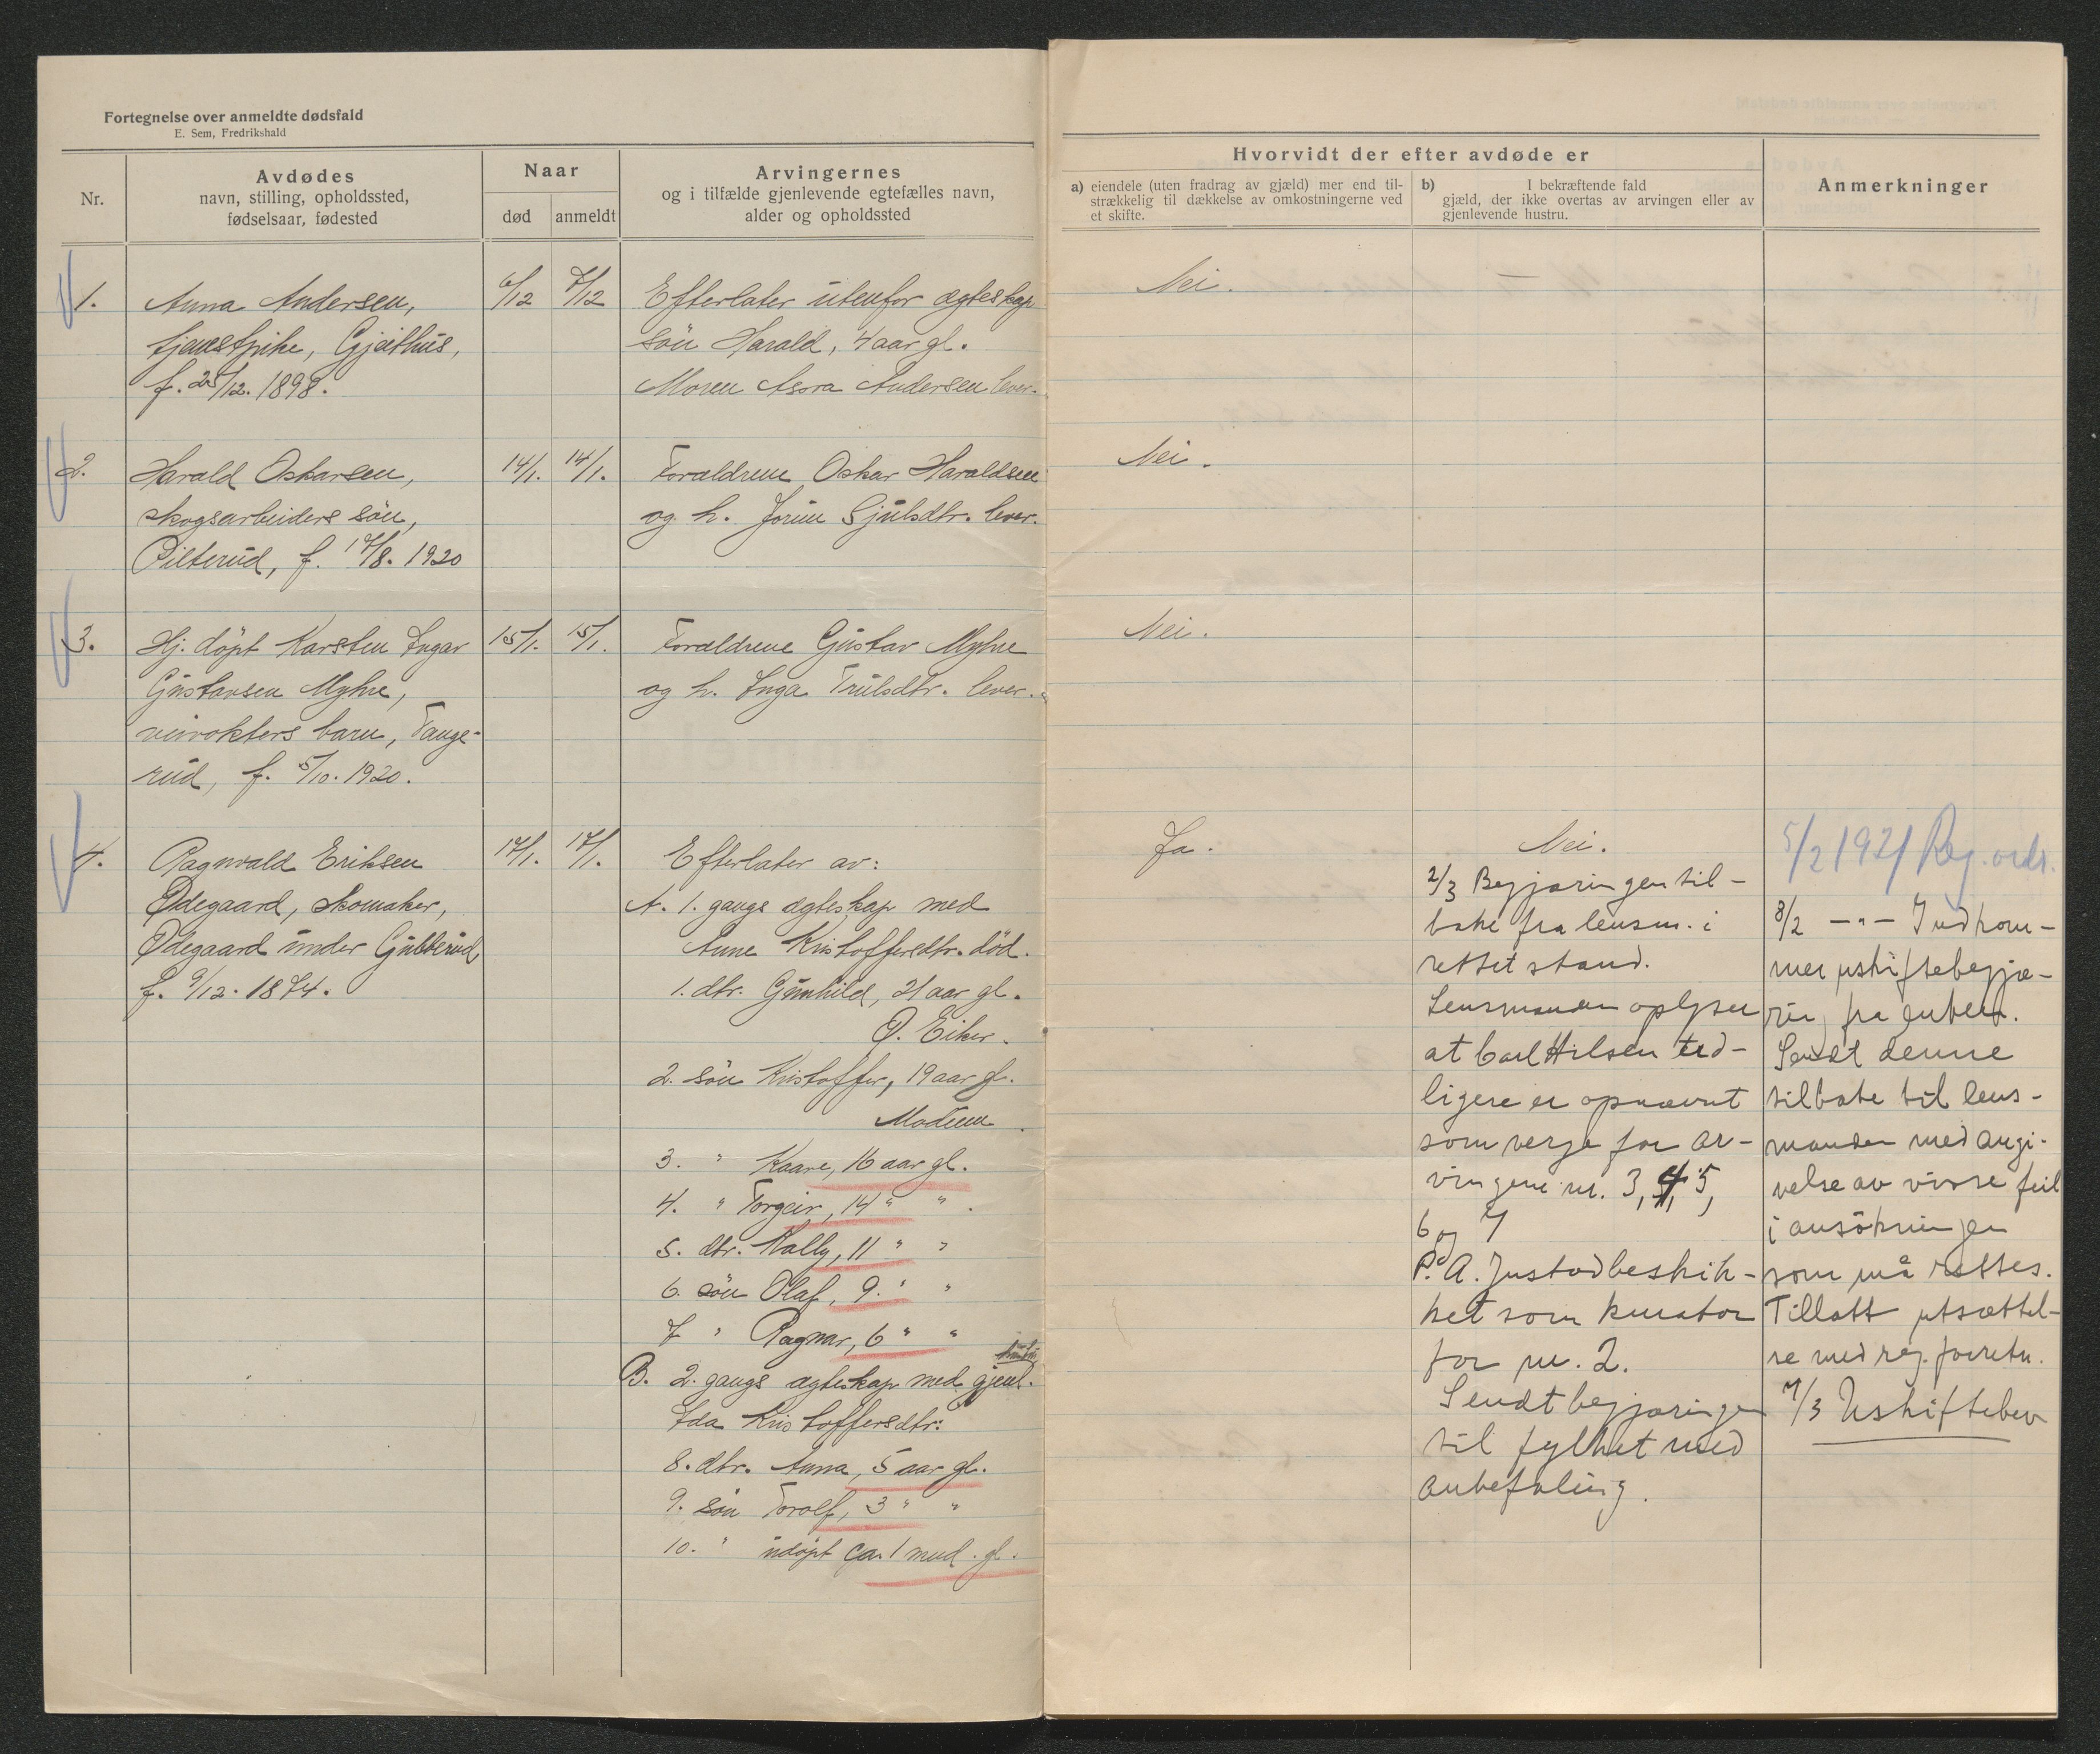 Fortegnelse over anmeldte dødsfald
E. Sem, Fredrikshald
Nr.
Avdødes
navn, stilling, opholdssted,
fødselsaar, fødested
Naar
død
anmeldt
Arvingernes
og i tilfælde gjenlevende egtefælles navn,
alder og opholdssted
Hvorvidt der efter avdøde er
a) eiendele (uten fradrag av gjæld) mer end til-
strækkelig til dækkelse av omkostningerne ved
et skifte.
b) I bekræftende fald
gjæld, der ikke overtas av arvingen eller av
gjenlevende hustru.
Anmerkninger
1.
Anna Andersen,
tjenestpike, Gjeithus,
f. 25/12. 1898.
6/12
7/12
Efterlater utenfor ægteskap
søn Harald, 4 aar gl.
Moren Asora Andersen lever.
Nei.
—
2.
Harald Oskarsen,
skogsarbeiders søn,
Pilterud, f. 17/8. 1920
14/1.
14/1.
Forældrene Oskar Haraldsen
og h. Jorun Sjulsdtr. lever.
Nei.
3.
Hj. døpt Karsten Ingar
Gustavsen Myhre,
veivokters barn, Tange-
rud, f. 5/10. 1920.
15/1.
15/1.
Forældrene Gustav Myhre
og h. Inga Trulsdtr. lever.
Nei.
4.
Ragnvald Eriksen
Ødegaard, skomaker,
Ødegaard under Gubberud
f. 9/12. 1874.
17/1.
17/1.
Efterlater av:
A. 1. gangs ægteskap med
Anne Kristoffersdtr. død.
1. dtr. Gunhild, 21 aar gl.
Ø. Eiker.
2. søn Kristoffer, 19 aar gl.
Modum.
3. " Kaare, 16 aar gl.
4. " Torgeir, 14 " " .
5. dtr. Kally, 11 " "
6. søn Olaf, 9. " "
7 " Ragnar, 6 " "
hustru
B. 2. gangs ægteskap med gjenl.
Ida Kristoffersdtr:
8. dtr. Anna, 5 aar gl.
9. søn Torolf, 3 " "
10. " udøpt ca. 1 mnd. gl.
Ja.
Nei.
2/3 Begjæringen til-
bake fra lensm. i
rettet stand.
Lensmanden oplyser
at Carl Hilsen tid-
ligere er opnævnt
som verge for ar-
vingene nr. 3, 4, 5,
6 og 7
P. A. Justad beskik-
ket som kurator
for nr. 2.
Sendt begjæringen
til fylket med
anbefaling.
5/2 1921 Reg. ordr.
8/2 — " — Indkom-
mer uskiftebegjæ-
rin, fra enken.
Sendt denne
tilbake til lens-
manden med angi-
velse av visse feil
i ansökningen
som må rettes.
Tillatt utsættel-
se med reg. forretn.
7/3 Uskiftebev